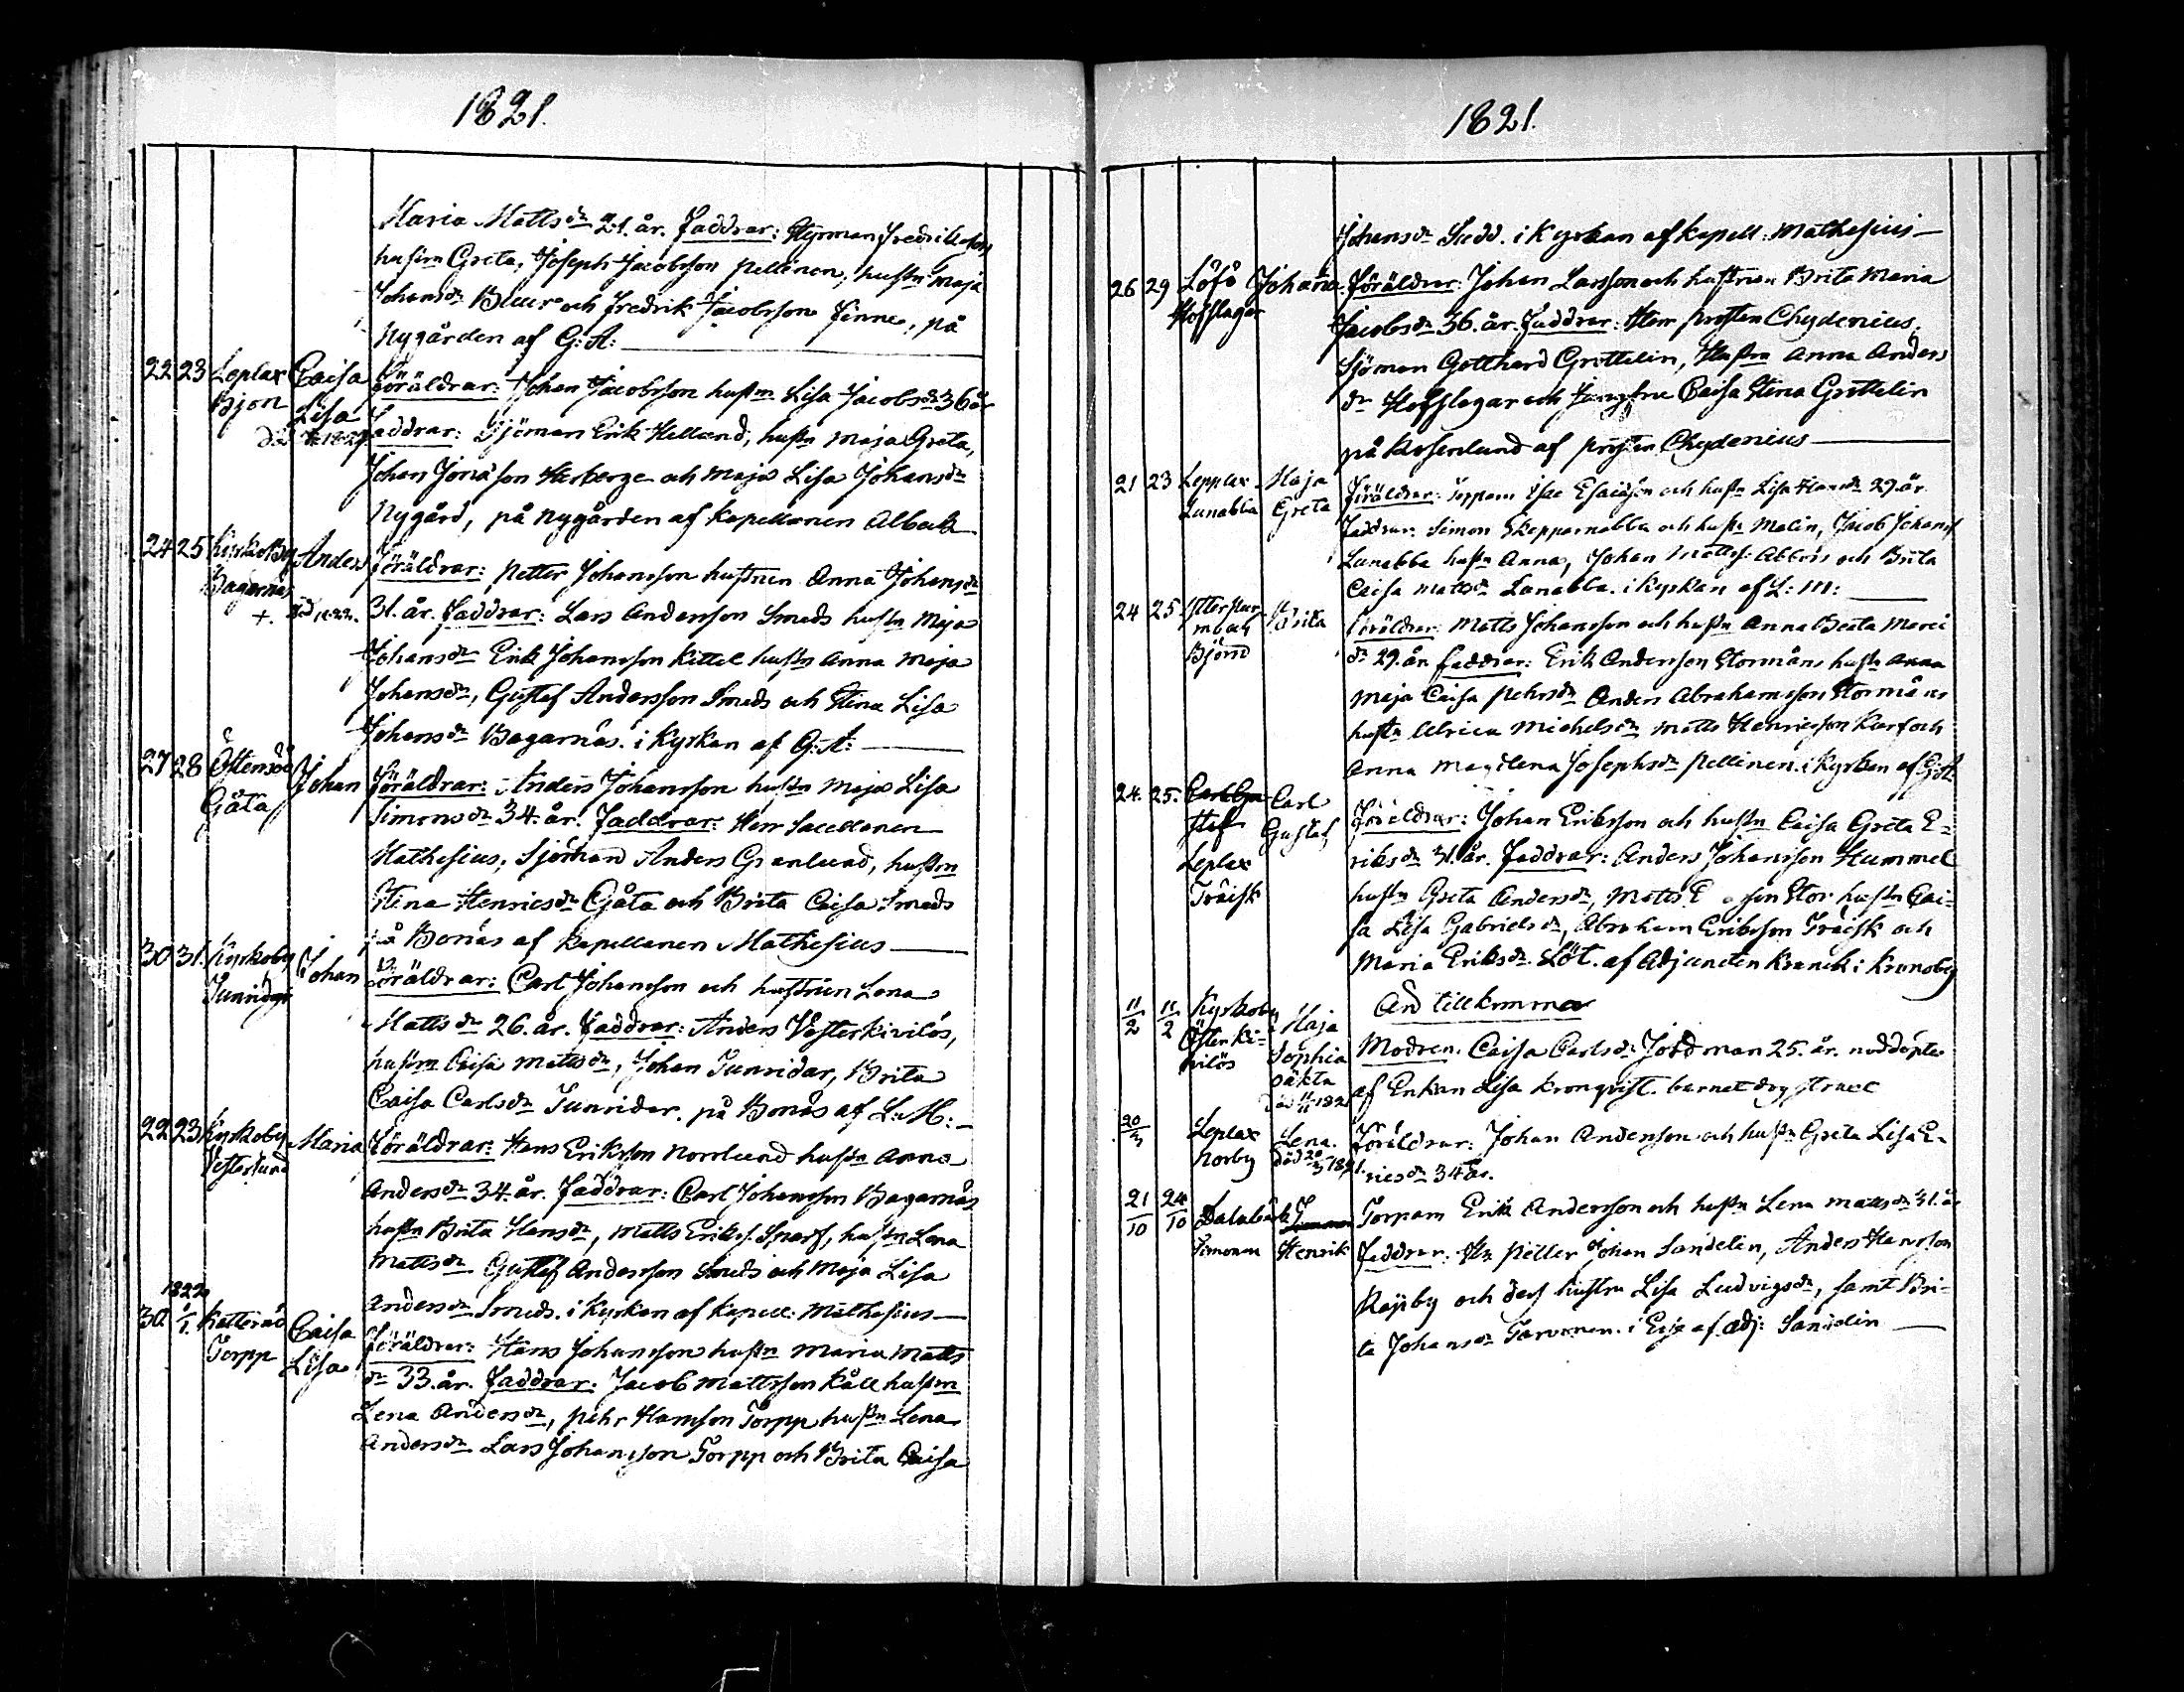 1821.
Maria Matts dr 21. år. Faddrar: Styrman Fredrikson,
hustru Greta, Joseph Jacobsson Pellinen, hustn Maja
Johans dr Buur och Fredrik Jacobsson Finne, på
Nygården af G: A:
22 23 Leplax Caisa Föräldrar: Johan Jacobsson hustn Lisa Jacobs dr 36 år
Bjon Lisa Faddrar: Sjöman Erik Hellund, hustn Maja Greta,
Johan Jonasson Herberge och Maja Lisa Johans dr
Nygård, på Nygården af Kapellanen Alback
24 25 Kyrkoby Anders Föräldrar: Petter Johansson hustrun Anna Johans dr
Bagarnäs + död 1822. 31. år. Faddrar: Lars Andersson Smeds hustn Maja
Johans dr Erik Johansson Kittel hustn Anna Maja
Johans dr, Gustaf Andersson Smeds och Stina Lisa
Johans dr Bagarnäs. i Kyrkan af G: A:
27 28 Östensö Johan Föräldrar: Anders Johansson hustn Maja Lisa
Gåta Simons dr 34. år. Faddrar: Herr Sacellanen
Mathesius, Sjöman Anders Granlund, hustrn
Stina Henrics dr Gåta och Brita Caisa Smeds
på Bonäs af Kapellanen Mathesius
30 31. Kyrkoby Johan Föräldrar: Carl Johansson och hustrun Lena
Junridar Matts dr 26. år. Faddrar: Anders Vesterkivilös,
hustrn Caisa Matts dr, Johan Junridar, Brita
Caisa Carls dr Junridar. på Bonäs af L: M:
22 23 Kyrkoby Maria Föräldrar: Hans Eriksson Norrlund hustn Anna
Vesterlund Anders dr 34. år. Faddrar: Carl Johansson Bagarnäs
hustn Brita Hans dr, Matts Eriks. Snarf, hustn Lena
Matts dr Gustaf Andersson Smeds och Maja Lisa
Anders dr Smeds. i Kyrkan af Kapell: Mathesius
1822
30 1/1. Katterad Caisa Föräldrar: Hans Johansson hustn Maria Matts
Torpp Lisa dr 33. år. Faddrar: Jacob Mattsson Kåll hustrn
Lena Anders dr, Pehr Hansson Torpp hustn Lena
Anders dr Lars Johansson Torpp och Brita Caisa
1821.
Johans dr Sudd. i Kyrkan af Kapell: Mathesius
26 29 Löfö Johanna Föräldrar: Johan Larsson och hustrun Brita Maria
Hofslagar Jacobs dr 36. år. Faddrar: Herr Prosten Chydenius,
Sjöman Gotthard Grettelin, Hustrn Anna Anders
dr Hofslagar och Jungfru Caisa Stina Grettelin
på Rosenlund af Prosten Chydenius
21 23 Lepplax Maja Föräldrar: Torparn Isac Esaiasson och hustn Lisa Hans dr 29. år.
Lunabba Greta Faddrar: Simon Skepparnabba och hustr Malin, Jacob Johans
Lunabba hustn Anna, Johan Matts: Abbors och Brita
Caisa Matts dr Lunabba. i Kyrkan af L: M:
24 25 Brita Föräldrar: Matts Johansson och hustn Anna Beata Marci
Björnd dr 29. år. Faddrar: Erik Andersson Stormåns hustn Anna
Maja Caisa Pehrs dr Anders Abrahamsson Stormåns
hustn Ulrica Michels dr Matts Henricsson Karf och
Anna Magdlena Josephs dr Pellinen. i Kyrkan af G: A
24. 25. Carl Gustaf Carl Föräldrar: Johan Eriksson och hustn Caisa Greta E-
Gustaf riks dr 31. år. Faddrar: Anders Johansson Hummel
Leplax hustn Greta Anders dr, Matts E sson Stor hustn Cai-
Träisk sa Lisa Gabriels dr, Abraham Eriksson Träisk och
Maria Eriks dr Löt. af Adjuncten Kranck i Kronoby
And tillkomma
11/2 11/2 Kyrkoby Maja Modren. Caisa Carls dr Jordman 25. år. nöddöpte
Östen Ki- Sophia af Enkan Lisa Kronqvist. barnet dog straxt
vilös oäkta
20/3 Leplax Lena. Föräldrar: Johan Andersson och hustn Greta Lisa E-
Norby död 20/3 1821. rics dr 34 år.
21/10 24/10 Dalabäck Torparn Erik Andersson och hustn Lena Matts dr 31. år
Timonen Henrik Faddrar: Hr Petter Johan Sandelin, Anders Hansson
Räjsby och dess hustru Lisa Ludvigs dr, samt Bri-
ta Johans dr Tarvonen. i Esse af adj: Sandelin